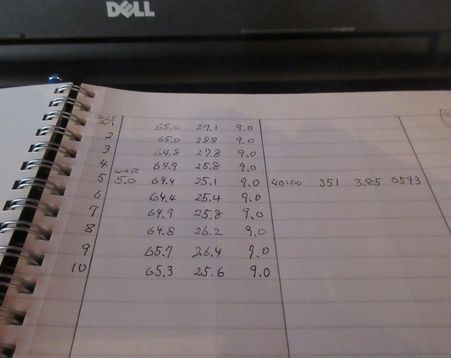 DELL
1 65.0 27.1 9.0
2 65.0 28.8 9.0
3 64.8 27.8 9.0
4 64.9 25.8 9.0
5 5.0 64.4 25.1 9.0 40:00 351 3.85 6593
6 64.4 25.4 9.0
7 64.9 25.8 9.0
8 64.8 26.2 9.0
9 65.7 26.4 9.0
10 65.3 25.6 9.0